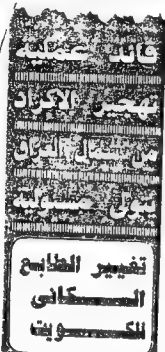 قائد عملية
تهجير الأكراد
من شمال العراق
يتولى مسئولية
تغيير الطابع
السكانى
للكويت